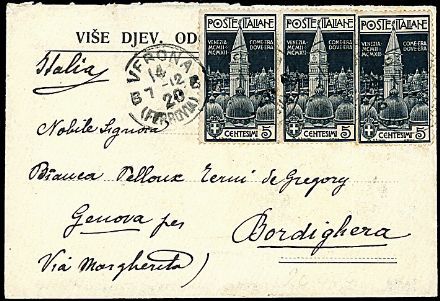 VIŠE DJEV. OD
VERONA
14
7-12
20
(FERROVIA)
POSTE ITALIANE
VENEZIA
MCMII
MCMXII
COM'ERA
DOV'ERA
CENTESIMI 5
POSTE ITALIANE
VENEZIA
MCMII
MCMXII
COM'ERA
DOV'ERA
CENTESIMI 5
POSTE ITALIANE
VENEZIA
MCMII
MCMXII
COM'ERA
DOV'ERA
CENTESIMI 5
Italia
Nobile Signora
Bianca Pelloux Terni de Gregory
Genova per Bordighera
Via Margherita)